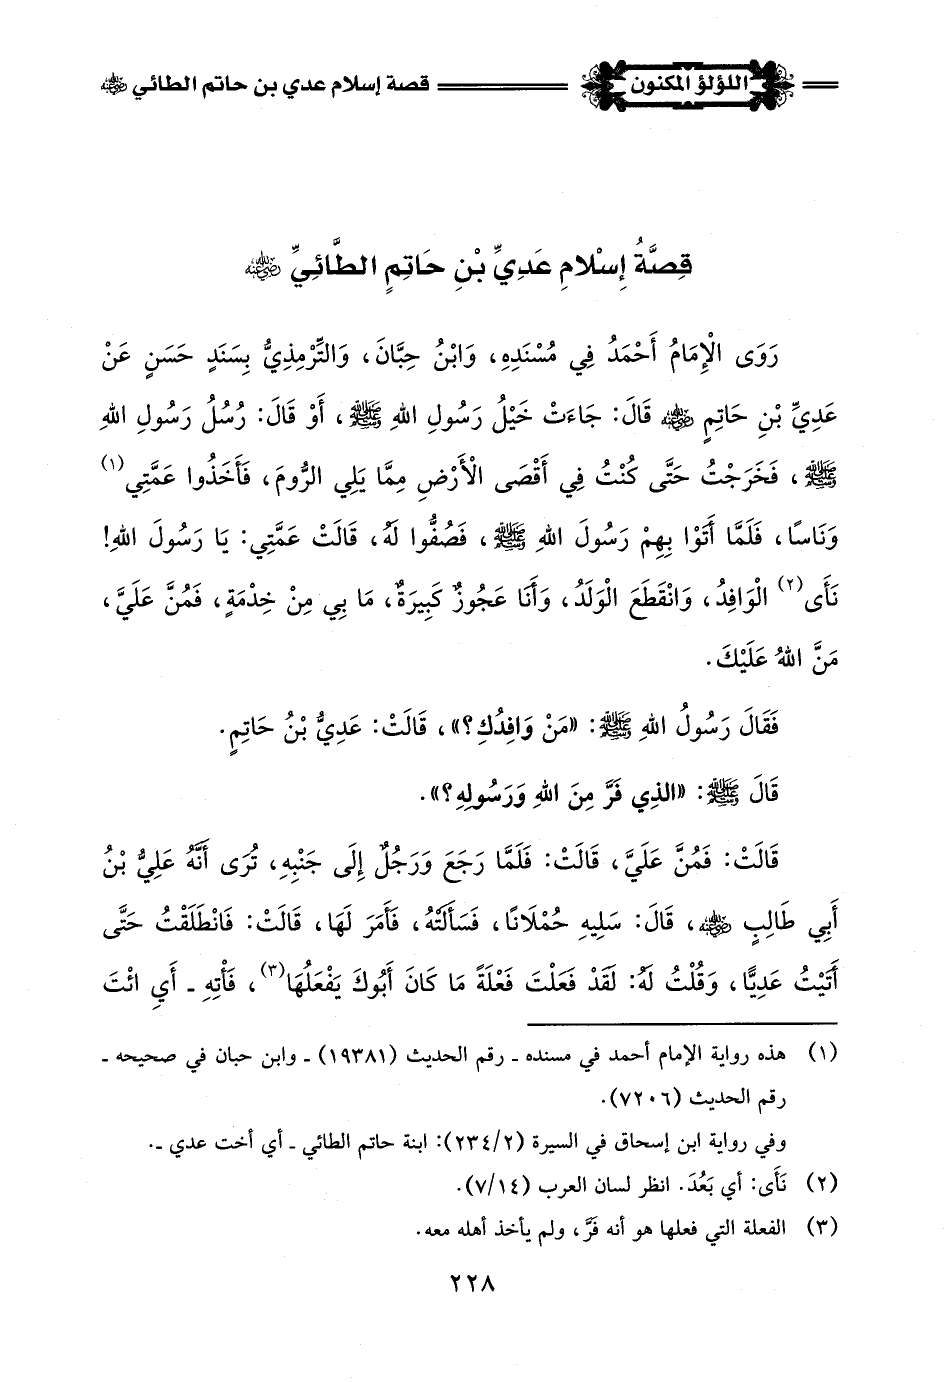 اللؤلؤ المكنون قصة إسلام عدي بن حاتم الطائي رضي الله عنه
قِصَّةُ إِسْلَامِ عَدِيِّ بْنِ حَاتِمٍ الطَّائِيِّ رضي الله عنه
رَوَى الْإِمَامُ أَحْمَدُ فِي مُسْنَدِهِ، وَابْنُ حِبَّانَ، وَالتِّرْمِذِيُّ بِسَنَدٍ حَسَنٍ عَنْ
عَدِيِّ بْنِ حَاتِمٍ رضي الله عنه قَالَ: جَاءَتْ خَيْلُ رَسُولِ اللهِ ﷺ، أَوْ قَالَ: رُسُلُ رَسُولِ اللهِ
ﷺ، فَخَرَجْتُ حَتَّى كُنْتُ فِي أَقْصَى الْأَرْضِ مِمَّا يَلِي الرُّومَ، فَأَخَذُوا عَمَّتِي(١)
وَنَاسًا، فَلَمَّا أَتَوْا بِهِمْ رَسُولَ اللهِ ﷺ، فَصُفُّوا لَهُ، قَالَتْ عَمَّتِي: يَا رَسُولَ اللهِ!
نَأَى(٢) الْوَافِدُ، وَانْقَطَعَ الْوَلَدُ، وَأَنَا عَجُوزٌ كَبِيرَةٌ، مَا بِي مِنْ خِدْمَةٍ، فَمُنَّ عَلَيَّ،
مَنَّ اللهُ عَلَيْكَ.
فَقَالَ رَسُولُ اللهِ ﷺ: «مَنْ وَافِدُكِ؟»، قَالَتْ: عَدِيُّ بْنُ حَاتِمٍ.
قَالَ ﷺ: «الذِي فَرَّ مِنَ اللهِ وَرَسُولِهِ؟».
قَالَتْ: فَمُنَّ عَلَيَّ، قَالَتْ: فَلَمَّا رَجَعَ وَرَجُلٌ إِلَى جَنْبِهِ، تُرَى أَنَّهُ عَلِيُّ بْنُ
أَبِي طَالِبٍ رضي الله عنه، قَالَ: سَلِيهِ حُمْلَانًا، فَسَأَلَتْهُ، فَأَمَرَ لَهَا، قَالَتْ: فَانْطَلَقْتُ حَتَّى
أَتَيْتُ عَدِيًّا، وَقُلْتُ لَهُ: لَقَدْ فَعَلْتَ فَعْلَةً مَا كَانَ أَبُوكَ يَفْعَلُهَا(٣)، فَأْتِهِ ـ أَيِ ائْتَ
(١) هذه رواية الإمام أحمد في مسنده ـ رقم الحديث (١٩٣٨١) ـ وابن حبان في صحيحه ـ
رقم الحديث (٧٢٠٦).
وفي رواية ابن إسحاق في السيرة (٢٣٤/٢): ابنة حاتم الطائي ـ أي أخت عدي ـ.
(٢) نَأَى: أي بَعُدَ. انظر لسان العرب (٧/١٤).
(٣) الفعلة التي فعلها هو أنه فَرَّ، ولم يأخذ أهله معه.
٢٢٨